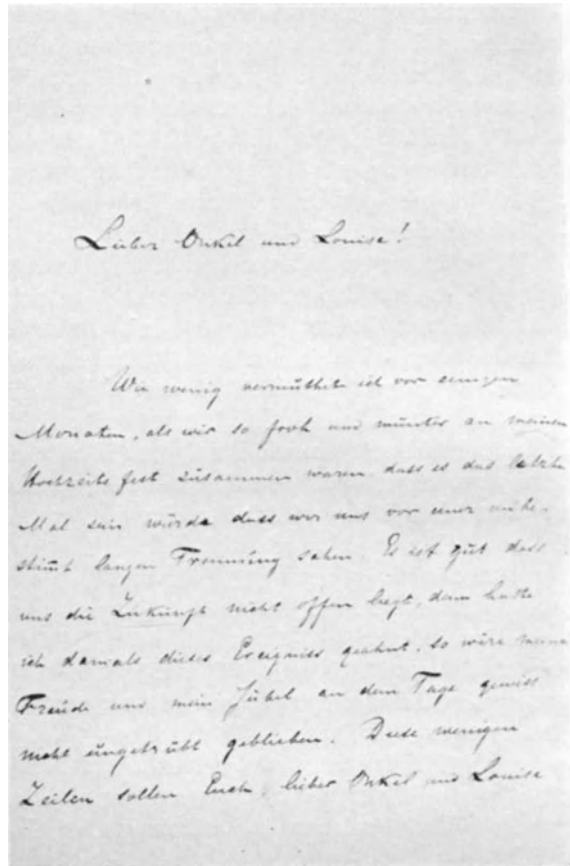 Lieber Onkel und Louise!
Wie wenig vermuthet ich vor einigen
Monaten, als wir so froh und munter an meinem
Hochzeits fest zusammen waren dass es das letzte
Mal sein würde dass wir uns vor einer unbe-
stimt langen Trennung sahen. Es ist gut dass
uns die Zukunft nicht offen liegt, denn hatte
ich damals dieses Ereigniss geahnt, so wäre meine
Freude und mein Jubel an dem Tage gewiss
nicht ungetrübt geblieben. Diese wenigen
Zeilen sollen Euch, lieber Onkel und Louise